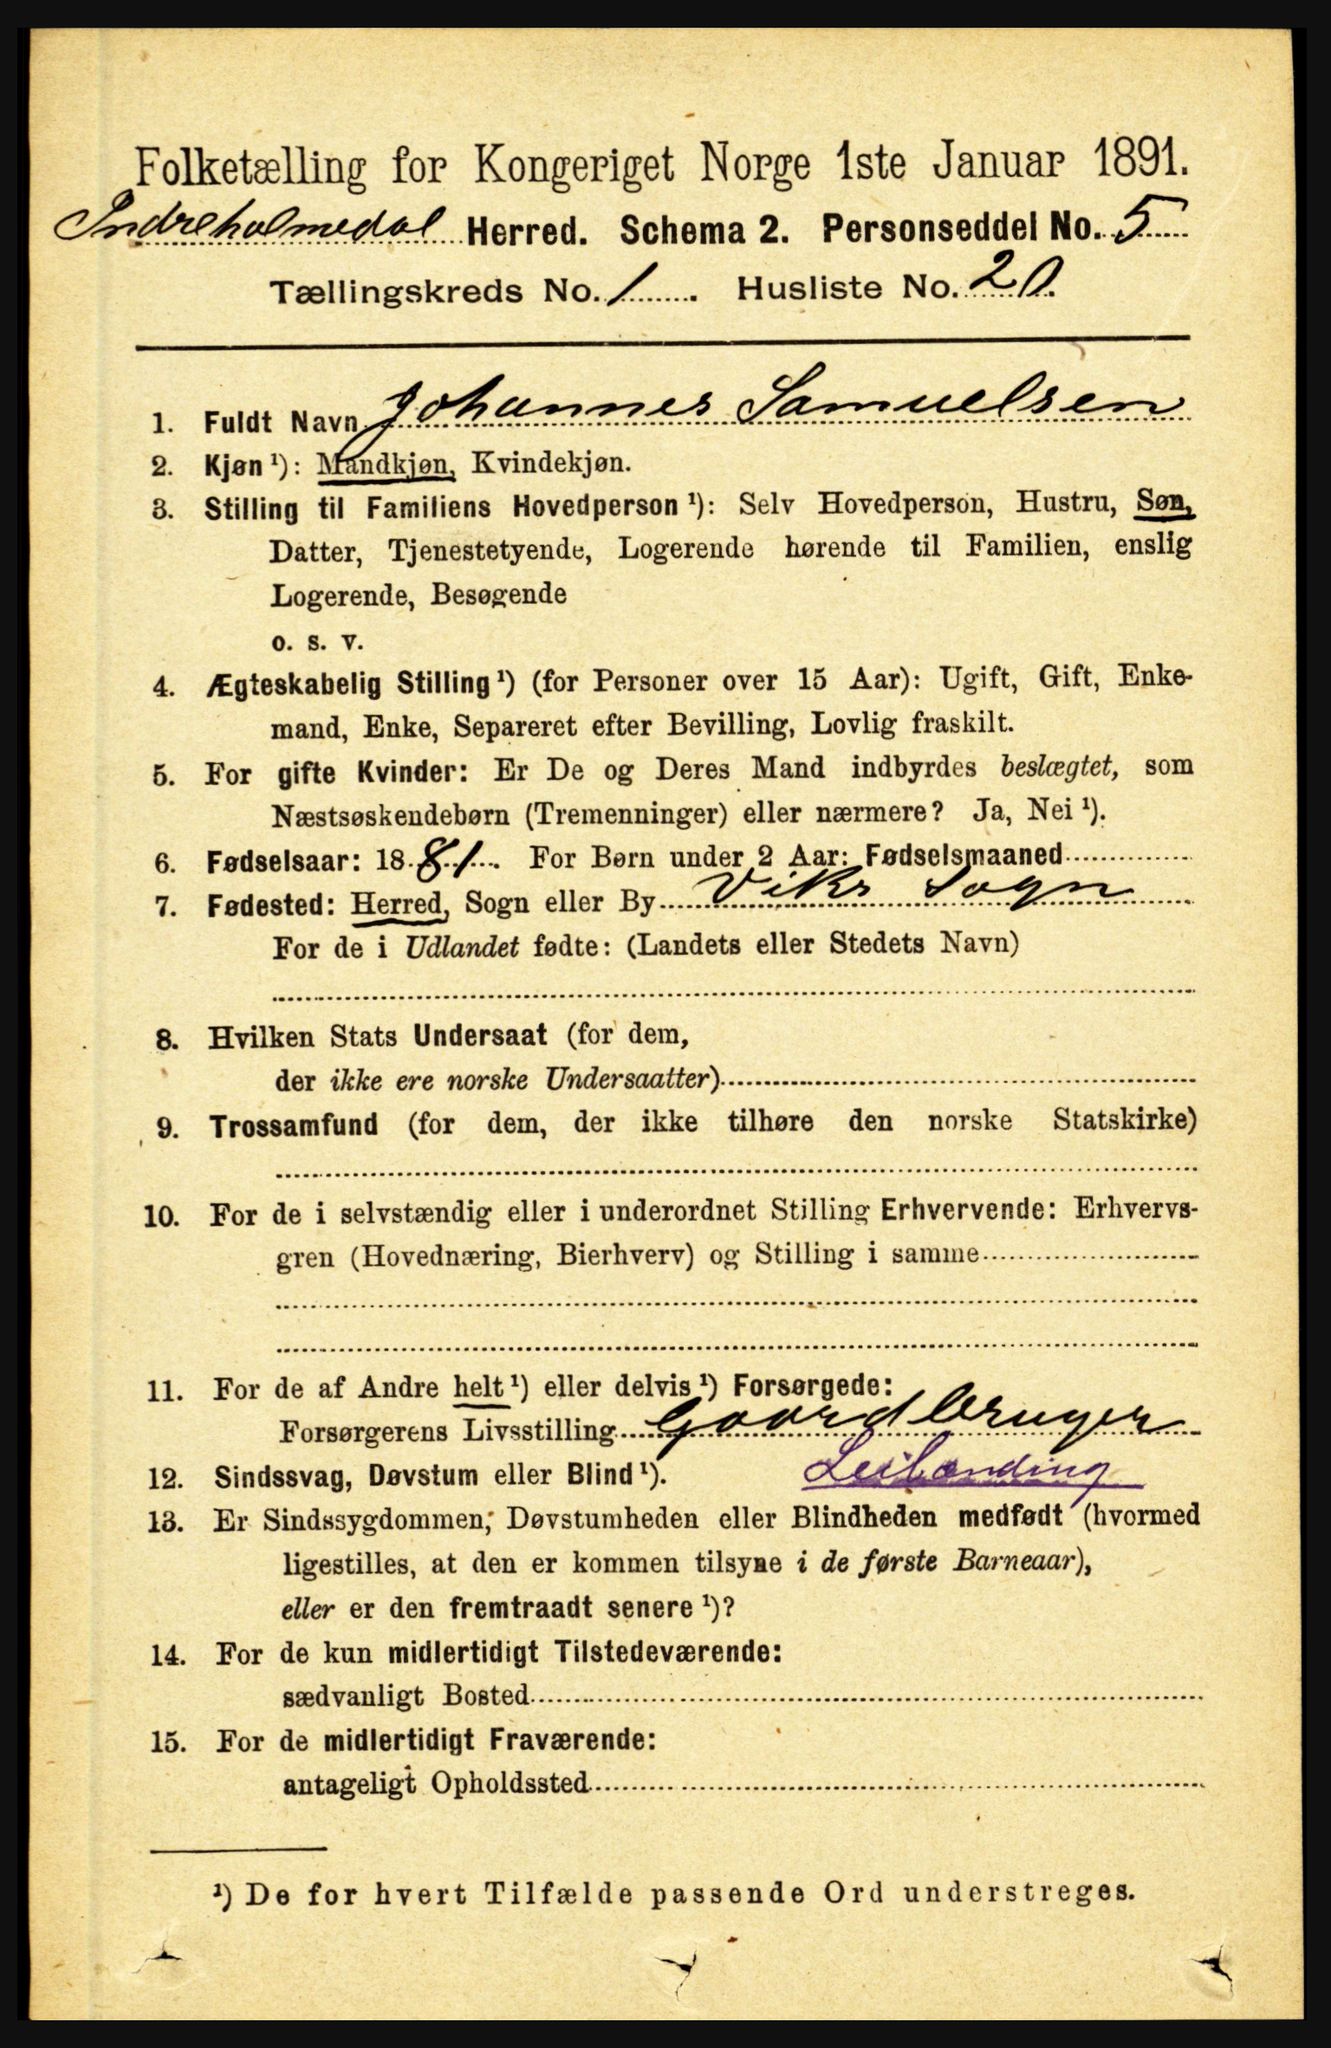 Folketælling for Kongeriget Norge 1ste Januar 1891.
Indreholmedal Herred. Schema 2. Personseddel No. 5
Tællingskreds No. 1. Husliste No. 20.
1. Fuldt Navn Johannes Samuelsen
2. Kjøn ¹): Mandkjøn, Kvindekjøn.
3. Stilling til Familiens Hovedperson ¹): Selv Hovedperson, Hustru, Søn,
Datter, Tjenestetyende, Logerende hørende til Familien, enslig
Logerende, Besøgende
o. s. v.
4. Ægteskabelig Stilling ¹) (for Personer over 15 Aar): Ugift, Gift, Enke-
mand, Enke, Separeret efter Bevilling, Lovlig fraskilt.
5. For gifte Kvinder: Er De og Deres Mand indbyrdes beslægtet, som
Næstsøskendebørn (Tremenninger) eller nærmere? Ja, Nei ¹).
6. Fødselsaar: 1881. For Børn under 2 Aar: Fødselsmaaned
7. Fødested: Herred, Sogn eller By Viks Sogn
For de i Udlandet fødte: (Landets eller Stedets Navn)
8. Hvilken Stats Undersaat (for dem,
der ikke ere norske Undersaatter)
9. Trossamfund (for dem, der ikke tilhøre den norske Statskirke)
10. For de i selvstændig eller i underordnet Stilling Erhvervende: Erhvervs-
gren (Hovednæring, Bierhverv) og Stilling i samme
11. For de af Andre helt ¹) eller delvis ¹) Forsørgede:
Forsørgerens Livsstilling Gaardbruger
12. Sindssvag, Døvstum eller Blind ¹). Leilænding
13. Er Sindssygdommen, Døvstumheden eller Blindheden medfødt (hvormed
ligestilles, at den er kommen tilsyne i de første Barneaar),
eller er den fremtraadt senere ¹)?
14. For de kun midlertidigt Tilstedeværende:
sædvanligt Bosted
15. For de midlertidigt Fraværende:
antageligt Opholdssted
¹) De for hvert Tilfælde passende Ord understreges.